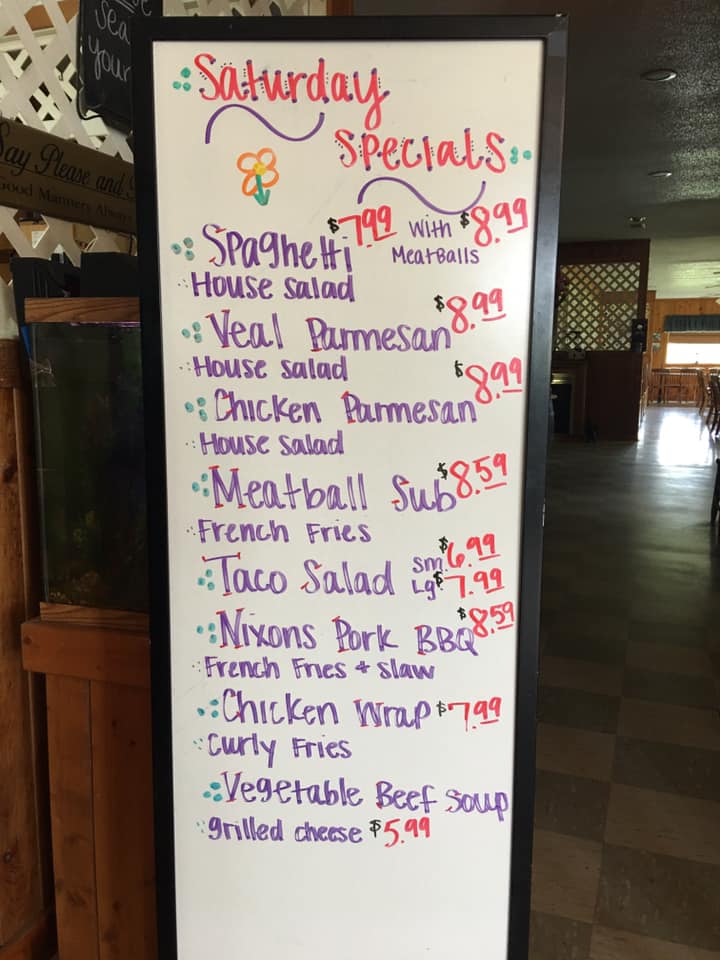 Sea
your
Say Please and
Good Manners Always
Saturday
Specials
Spaghetti $7.99 with $8.99
Meatballs
House salad
Veal Parmesan $8.99
House salad
Chicken Parmesan $8.99
House salad
Meatball Sub $8.59
French Fries
Taco Salad Sm $6.99
Lg $7.99
Nixons Pork BBQ $8.59
French Fries + slaw
Chicken Wrap $7.99
Curly Fries
Vegetable Beef Soup
grilled cheese $5.99